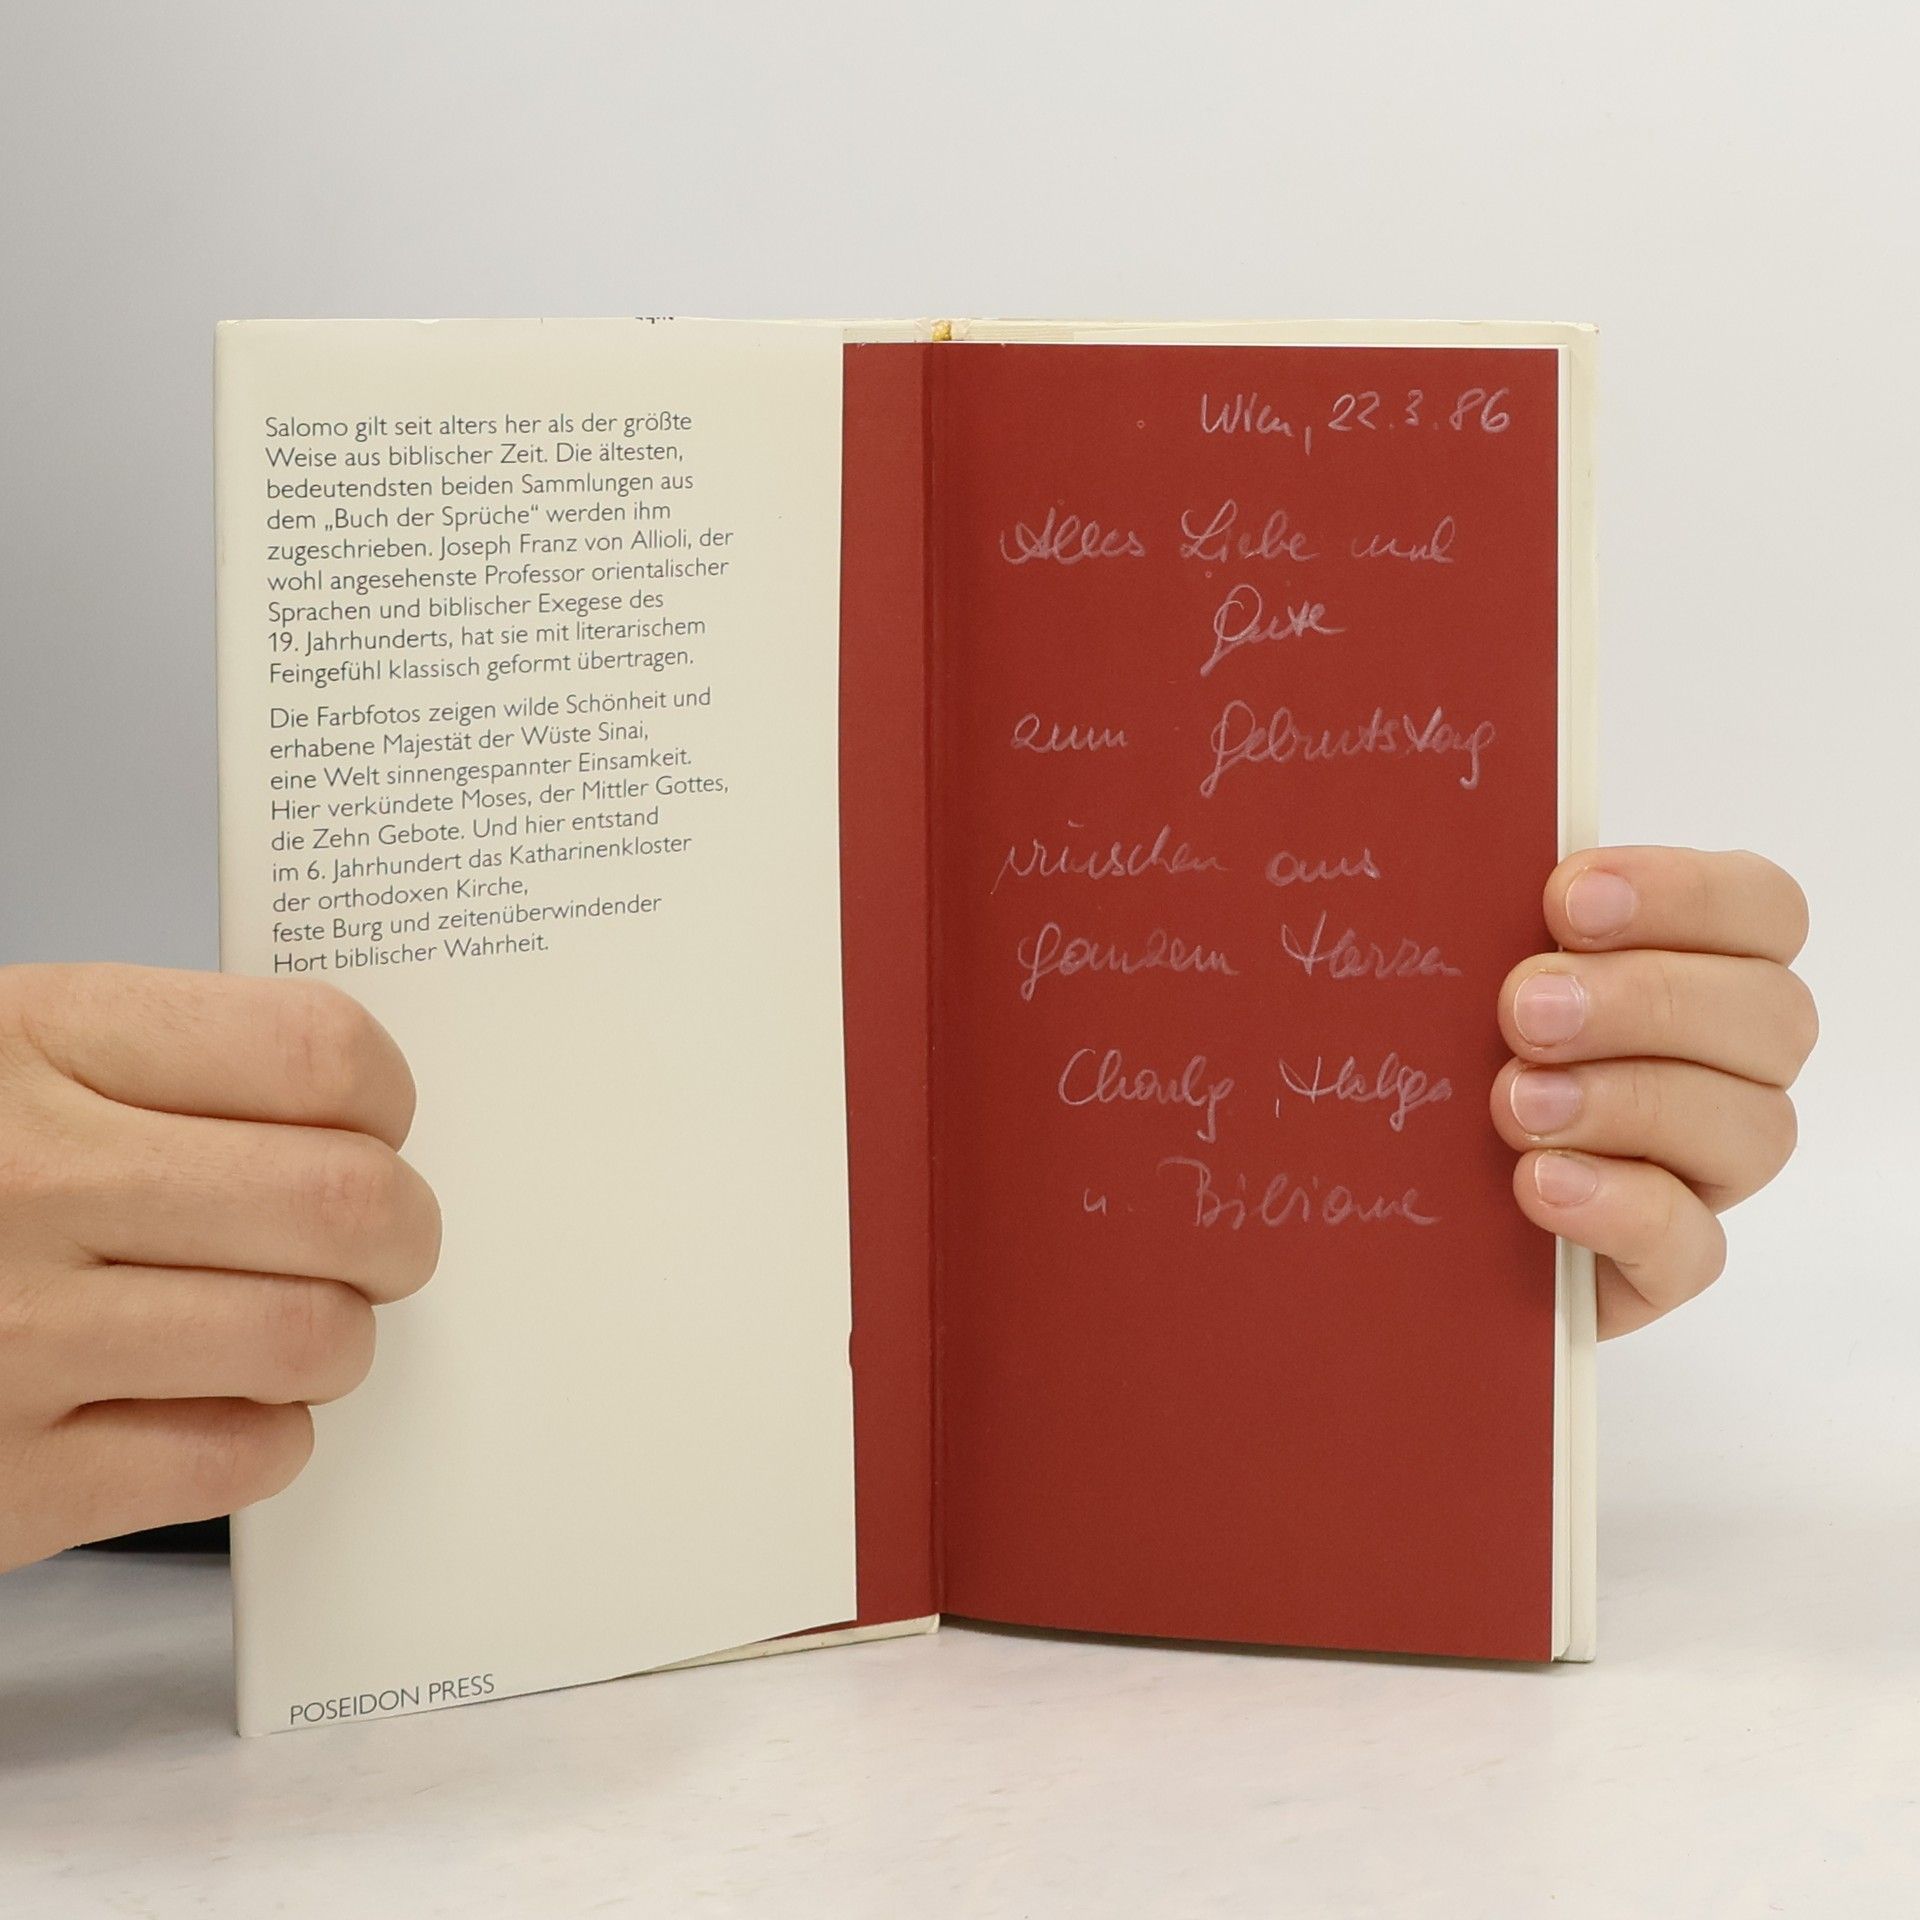 Salomo gilt seit alters her als der größte
Weise aus biblischer Zeit. Die ältesten,
bedeutendsten beiden Sammlungen aus
dem „Buch der Sprüche“ werden ihm
zugeschrieben. Joseph Franz von Allioli, der
wohl angesehenste Professor orientalischer
Sprachen und biblischer Exegese des
19. Jahrhunderts, hat sie mit literarischem
Feingefühl klassisch geformt übertragen.
Die Farbfotos zeigen wilde Schönheit und
erhabene Majestät der Wüste Sinai,
eine Welt sinnengespannter Einsamkeit.
Hier verkündete Moses, der Mittler Gottes,
die Zehn Gebote. Und hier entstand
im 6. Jahrhundert das Katharinenkloster
der orthodoxen Kirche,
feste Burg und zeitenüberwindender
Hort biblischer Wahrheit.
POSEIDON PRESS
Wien, 22.3.86
Alles Liebe und
Gute
zum Geburtstag
wünschen aus
ganzem Herzen
Charly, Helga
u. Bibiane